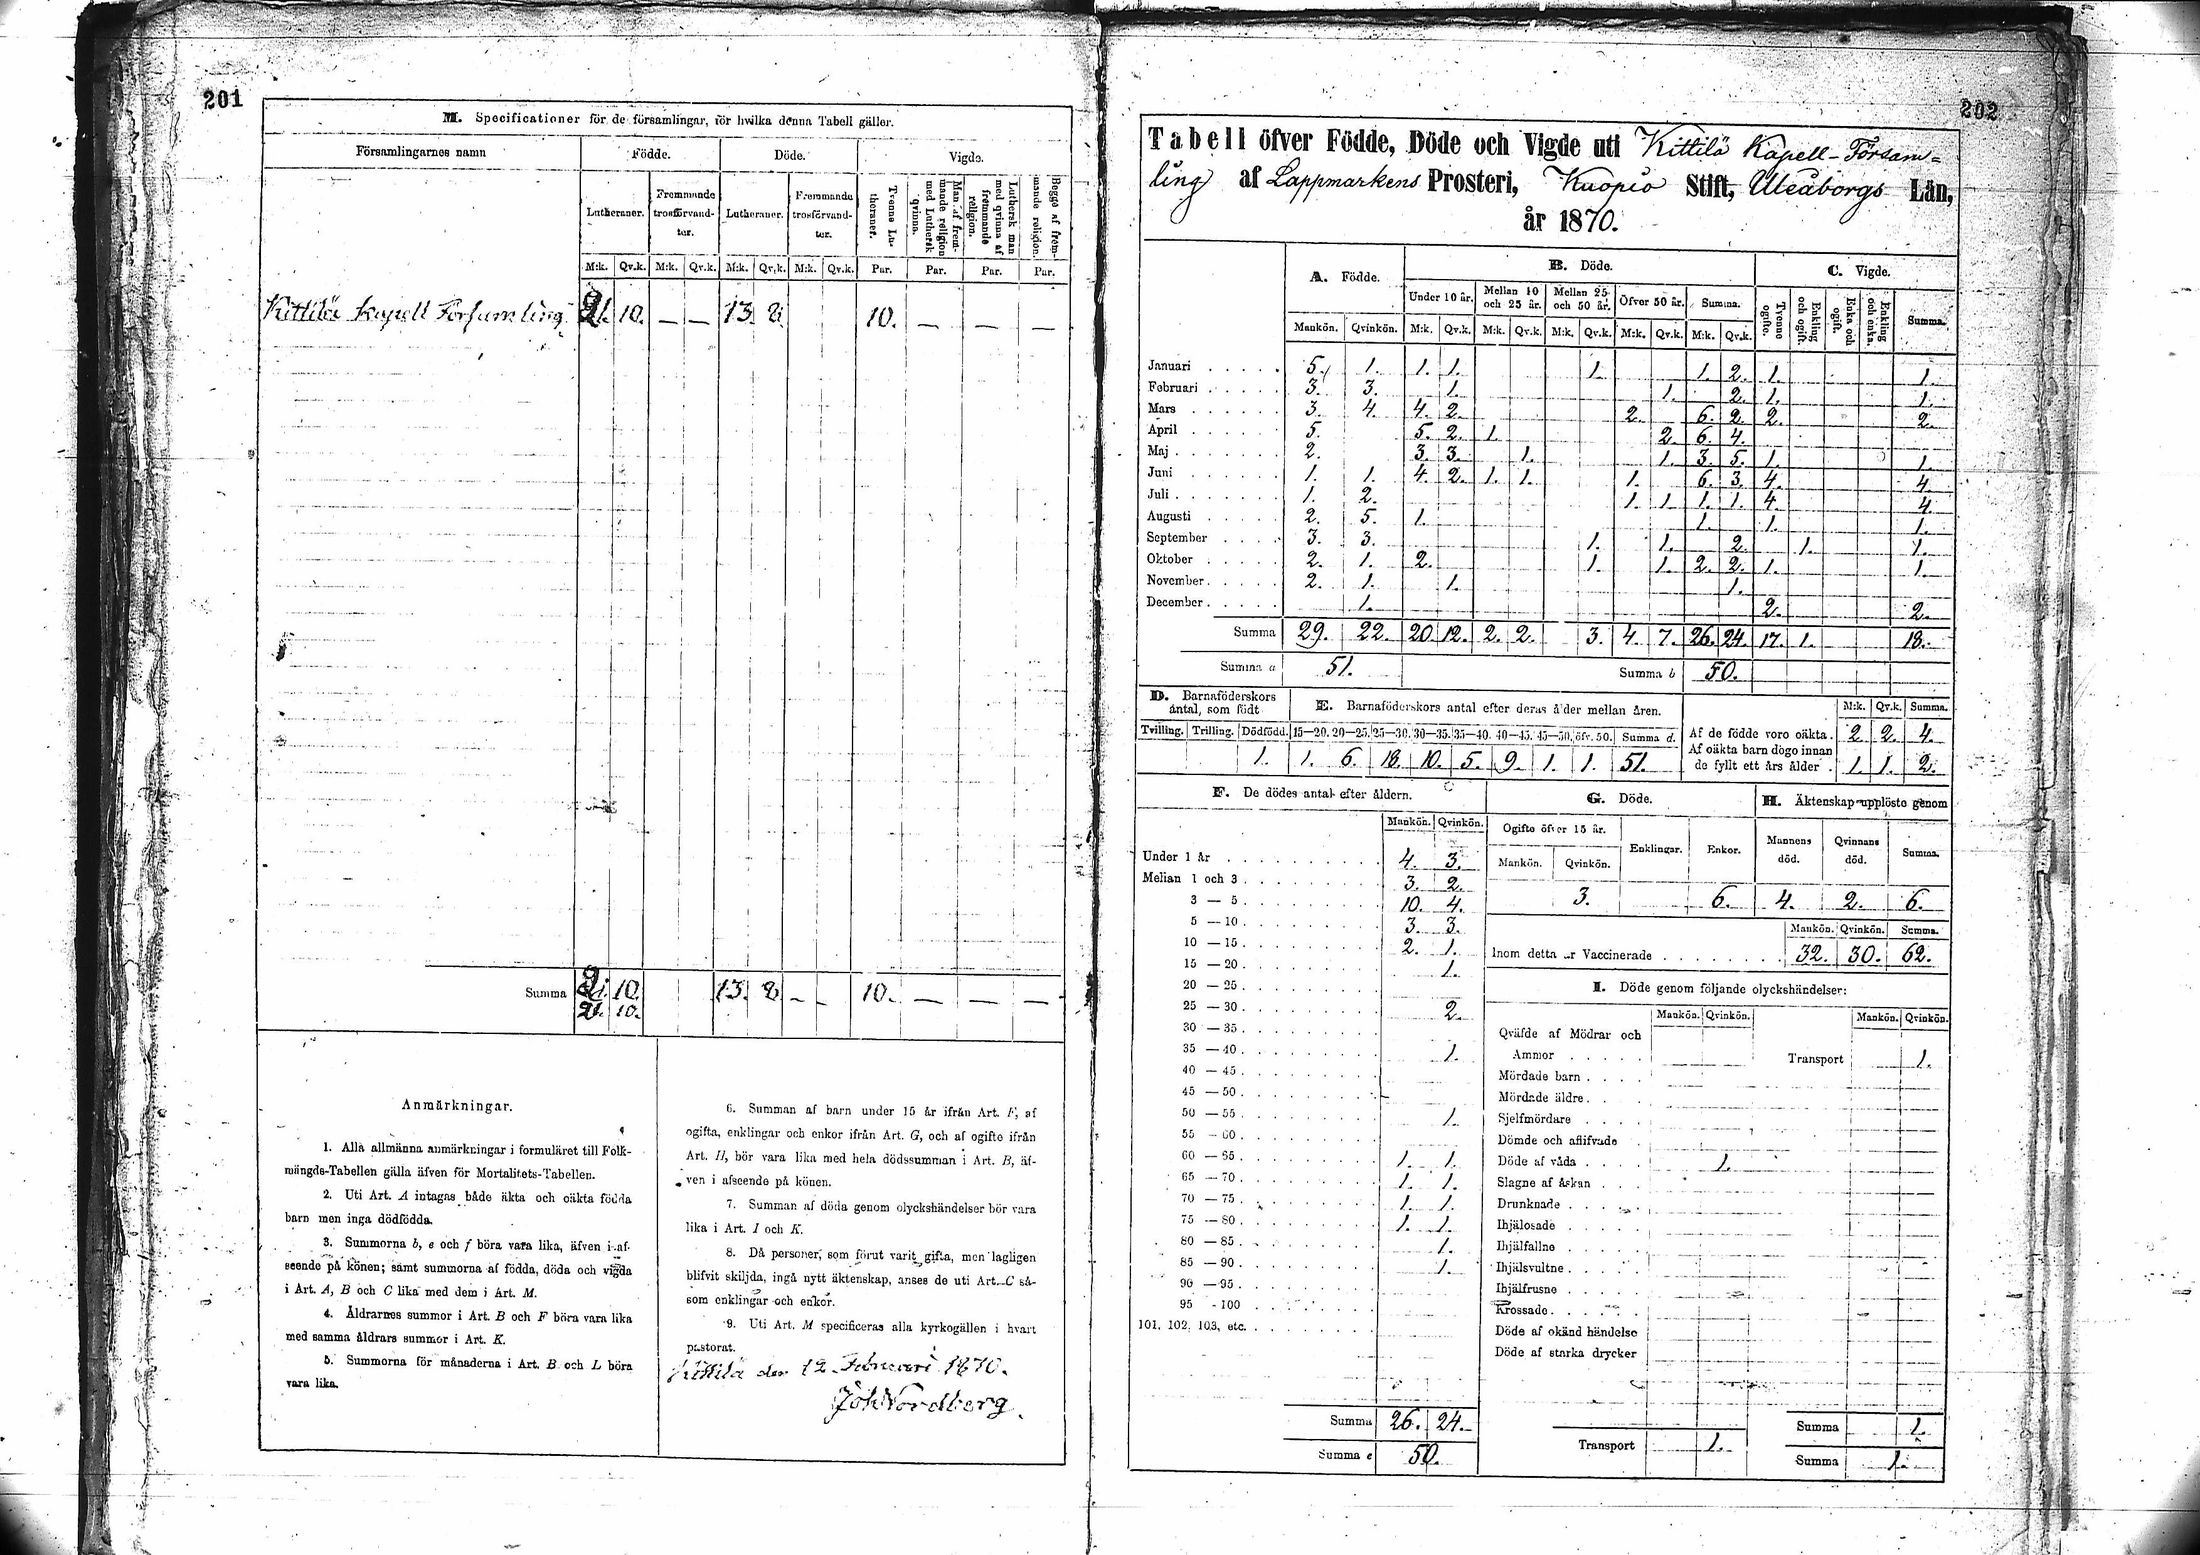 201
M. Specificationer för de församlingar, för hvilka denna Tabell gäller.
Församlingarnes namn Födde. Döde. Vigde.
Lutheraner. Fremmande trosförvandter. Lutheraner. Fremmande trosförvandter. Tvenne Lutheraner. Man af fremmande religion med Luthersk qvinna. Luthersk man med qvinna af fremmande religion. Begge af fremmande religion.
M:k. Qv.k. M:k. Qv.k. M:k. Qv.k. M:k. Qv.k. Par. Par. Par. Par.
Kittilä Kapell Församling 21. 10. — — 13. 8. 10. — — —
Summa 21. 10. 13. 8 — — 10. — — —
21. 10.
Anmärkningar.
1. Alla allmänna anmärkningar i formuläret till Folk-
mängds-Tabellen gälla äfven för Mortalitets-Tabellen.
2. Uti Art. A intagas både äkta och oäkta födda
barn men inga dödfödda.
3. Summorna b, e och f böra vara lika, äfven i af-
seende på könen; samt summorna af födda, döda och vigda
i Art. A, B och C lika med dem i Art. M.
4. Åldrarnes summor i Art. B och F böra vara lika
med samma åldrars summor i Art. K.
5. Summorna för månaderna i Art. B och L böra
vara lika.
6. Summan af barn under 15 år ifrån Art. F, af
ogifta, enklingar och enkor ifrån Art. G, och af gifte ifrån
Art. H, bör vara lika med hela dödssumman i Art. B, äf-
ven i afseende på könen.
7. Summan af döda genom olyckshändelser bör vara
lika i Art. I och K.
8. Då personer, som förut varit gifta, men lagligen
blifvit skiljda, ingå nytt äktenskap, anses de uti Art. C så-
som enklingar och enkor.
9. Uti Art. M specificeras alla kyrkogällen i hvart
pastorat.
Kittilä den 12 Februari 1870.
Joh Nordberg.
202
Tabell öfver Födde, Döde och Vigde uti Kittilä Kapell-Försam=
ling af Lappmarkens Prosteri, Kuopio Stift, Uleåborgs Län,
år 1870.
A. Födde. B. Döde. C. Vigde.
Under 10 år. Mellan 10 och 25 år. Mellan 25 och 50 år. Öfver 50 år. Summa. Tvenne ogifte. Enkling och ogift. Enka och ogift. Enkling och enka. Summa.
Mankön. Qvinkön. M:k. Qv.k. M:k. Qv.k. M:k. Qv.k. M:k. Qv.k. M:k. Qv.k.
Januari 5. 1. 1. 1. 1. 1. 2. 1. 1.
Februari 3. 3. 1. 1. 2. 1. 1.
Mars 3. 4. 4. 2. 2. 6. 2. 2. 2.
April 5. 5. 2. 1. 2. 6. 4.
Maj 2. 3. 3. 1. 1. 3. 5. 1. 1.
Juni 1. 1. 4. 2. 1. 1. 1. 6. 3. 4. 4.
Juli 1. 2. 1. 1. 1. 1. 4. 4.
Augusti 2. 5. 1. 1. 1. 1.
September 3. 3. 1. 1. 2. 1. 1.
Oktober 2. 1. 2. 1. 1. 2. 2. 1. 1.
November 2. 1. 1. 1.
December 1. 2. 2.
Summa 29. 22. 20. 12. 2. 2. 3. 4. 7. 26. 24. 17. 1. 18.
Summa a 51. Summa b 50.
D. Barnaföderskors antal, som födt
Tvilling. Trilling. Dödfödd.
1.
E. Barnaföderskors antal efter deras ålder mellan åren.
15—20. 20—25. 25—30. 30—35. 35—40. 40—45. 45—50. öfv. 50. Summa d.
1. 6. 18. 10. 5. 9. 1. 1. 51.
M:k. Qv.k. Summa.
Af de födde voro oäkta. 2. 2. 4.
Af oäkta barn dogo innan
de fyllt ett års ålder. 1. 1. 2.
F. De dödes antal efter åldern.
Mankön. Qvinkön.
Under 1 år 4. 3.
Mellan 1 och 3 3. 2.
3 — 5 10. 4.
5 — 10 3. 3.
10 — 15 2. 1.
15 — 20 1.
20 — 25
25 — 30 2.
30 — 35
35 — 40 1.
40 — 45
45 — 50
50 — 55 1.
55 — 60
60 — 65 1. 1.
65 — 70 1. 1.
70 — 75 1. 1.
75 — 80 1. 1.
80 — 85 1.
85 — 90 1.
90 — 95
95 - 100
101, 102, 103, etc.
Summa 26. 24.
Summa e 50.
G. Döde.
Ogifte öfver 15 år. Enklingar. Enkor.
Mankön. Qvinkön.
3. 6.
H. Äktenskap upplöste genom
Mannens död. Qvinnans död. Summa.
4. 2. 6.
Mankön. Qvinkön. Summa.
Inom detta år Vaccinerade 32. 30. 62.
I. Döde genom följande olyckshändelser:
Mankön. Qvinkön. Mankön. Qvinkön.
Qväfde af Mödrar och
Ammor Transport 1.
Mördade barn
Mördade äldre
Sjelfmördare
Dömde och aflifvade
Döde af våda 1.
Slagne af åskan
Drunknade
Ihjälosade
Ihjälfallne
Ihjälsvultne
Ihjälfrusne
Krossade
Döde af okänd händelse
Döde af starka drycker
Summa 1.
Transport 1.
Summa 1.